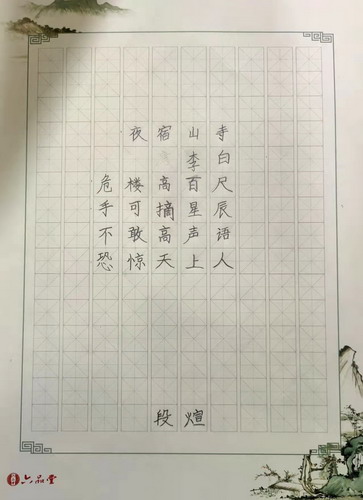 夜宿山寺
李白
危楼高百尺
手可摘星辰
不敢高声语
恐惊天上人
段煊
六品堂